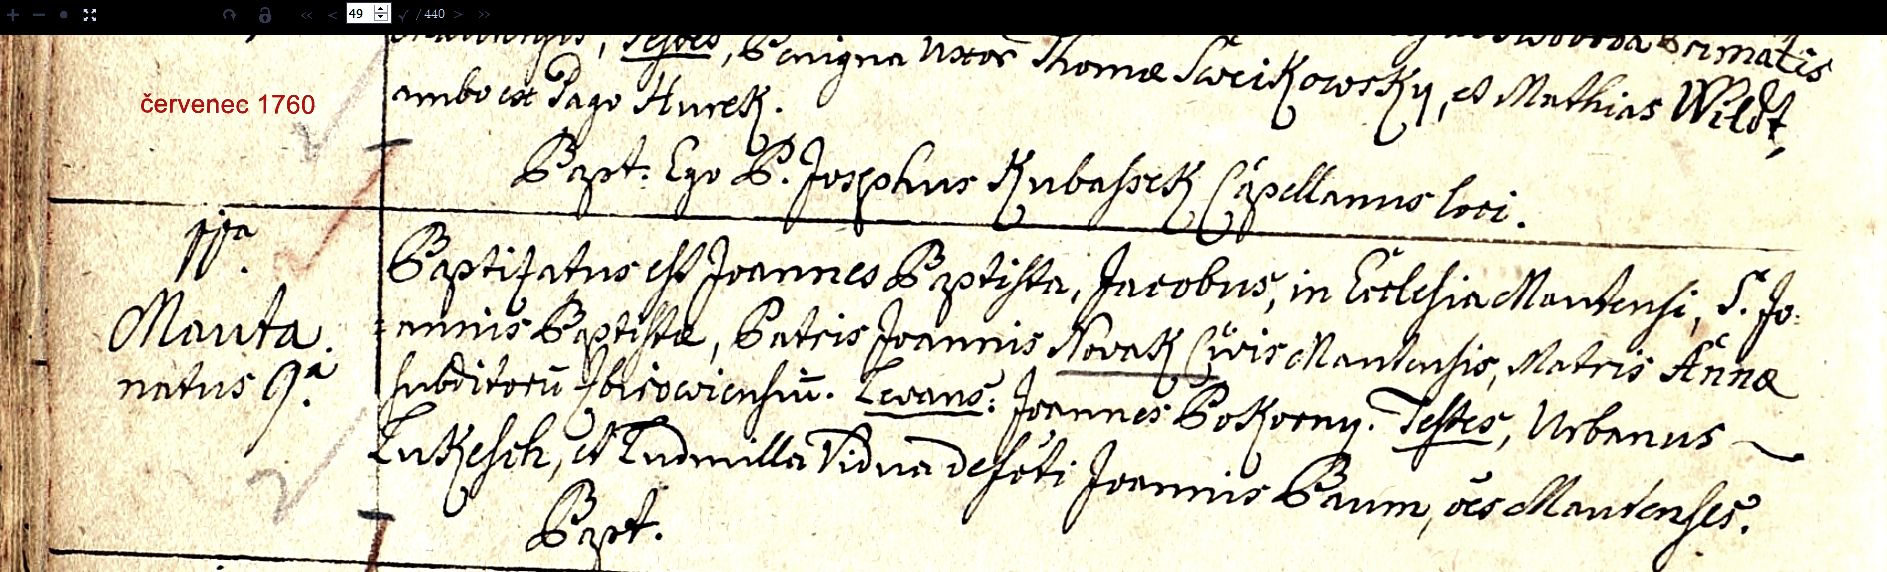 49 / 440
Testes, Benigna Uxor Thomæ Sweikowsky, et Mathias Wildt,
ambo ex Pago Hurek.
červenec 1760
Bapt: Ego P. Josephus Kubassek Capellanus loci.
Manta.
natus 9.ª
Baptizatus est Joannes Baptista, Jacobus, in Ecclesia Mautensi, S. Jo:
=annis Baptistæ, Patris Joannis Novak Civis Mautensis, Matris Annæ
subditorū Zbirowiensiū. Levans: Joannes Pokorny. Testes, Urbanus
Lukesch, et Ludmilla Vidua defōti Joannis Baum, ōes Mautenses.
Bapt.